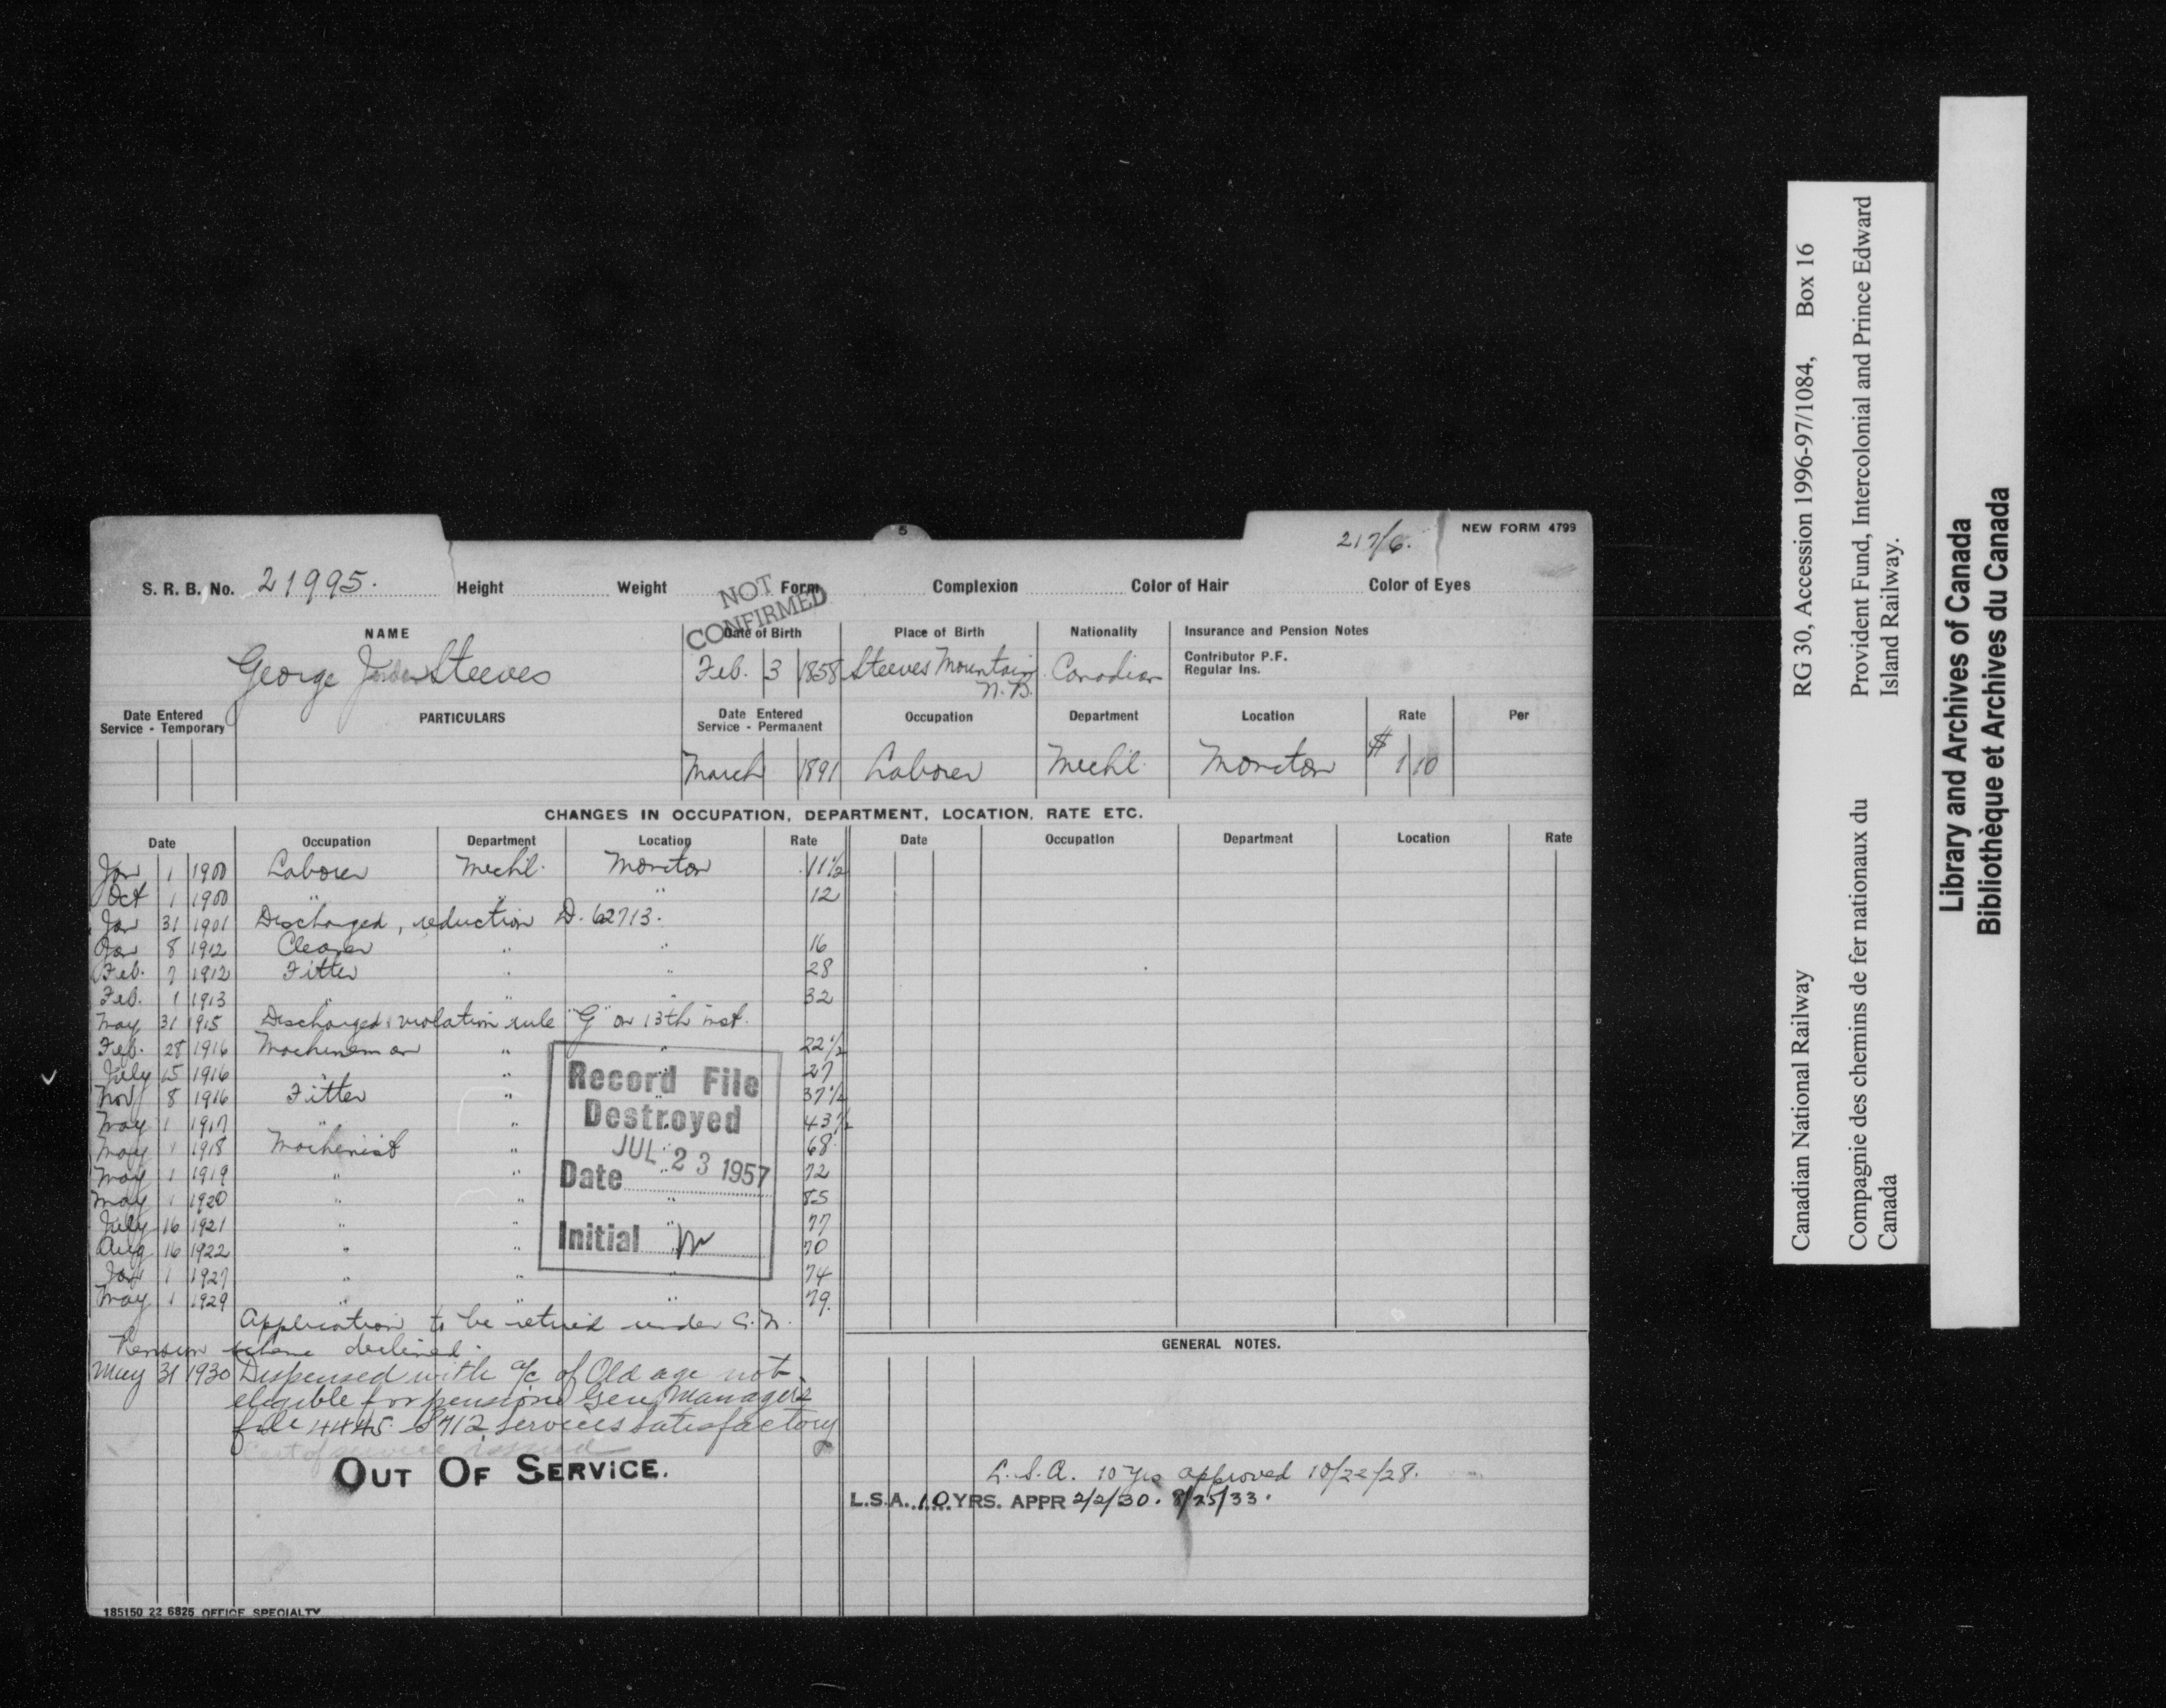 217/6.
NEW FORM 4799
5
S. R. B. No. 21995. Height Weight Form Complexion Color of Hair Color of Eyes
NOT CONFIRMED
NAME Date of Birth Place of Birth Nationality Insurance and Pension Notes
George Steeves Feb. 3 1858 Steeves Mountain N.B. Canadian Contributor P.F.
Regular Ins.
Date Entered Service - Temporary PARTICULARS Date Entered Service - Permanent Occupation Department Location Rate Per
March 1891 Laborer Mech'l. Moncton $ 1 10
CHANGES IN OCCUPATION, DEPARTMENT, LOCATION, RATE ETC.
Date Occupation Department Location Rate Date Occupation Department Location Rate
Jan 1 1900 Laborer Mech'l. Moncton .11½
Oct 1 1900 " " " 12
Jan 31 1901 Discharged, reduction D. 62713.
Jan 8 1912 Cleaner " " 16
Feb. 7 1912 Fitter " " 28
Feb. 1 1913 " " " 32
May 31 1915 Discharged violation rule "G" on 13th inst.
Feb. 28 1916 Machineman " " 22½
July 15 1916 " " " 27
Nov 8 1916 Fitter " 37½
May 1 1917 " " " 43½
May 1 1918 Machinist " " 68
May 1 1919 " " " 72
May 1 1920 " " " 85
July 16 1921 " " 77
Aug 16 1922 " " 70
Jan 1 1927 " " " 74
May 1 1929 " " " 79.
Record File
Destroyed
Date JUL 23 1957
Initial
Application to be retired under C.N.
Pension scheme declined.
May 31 1930 Dispensed with a/c of Old age not
eligible for pension Gen Manager's
file 4445- S712 services satisfactory
Cert of service issued
OUT OF SERVICE.
GENERAL NOTES.
L.S.A. 10 yrs approved 10/22/28.
L.S.A. 10 YRS. APPR 2/2/30. 8/25/33.
185150 22 6825 OFFICE SPECIALTY
Canadian National Railway RG 30, Accession 1996-97/1084, Box 16
Compagnie des chemins de fer nationaux du Canada
Provident Fund, Intercolonial and Prince Edward Island Railway.
Library and Archives of Canada
Bibliothèque et Archives du Canada